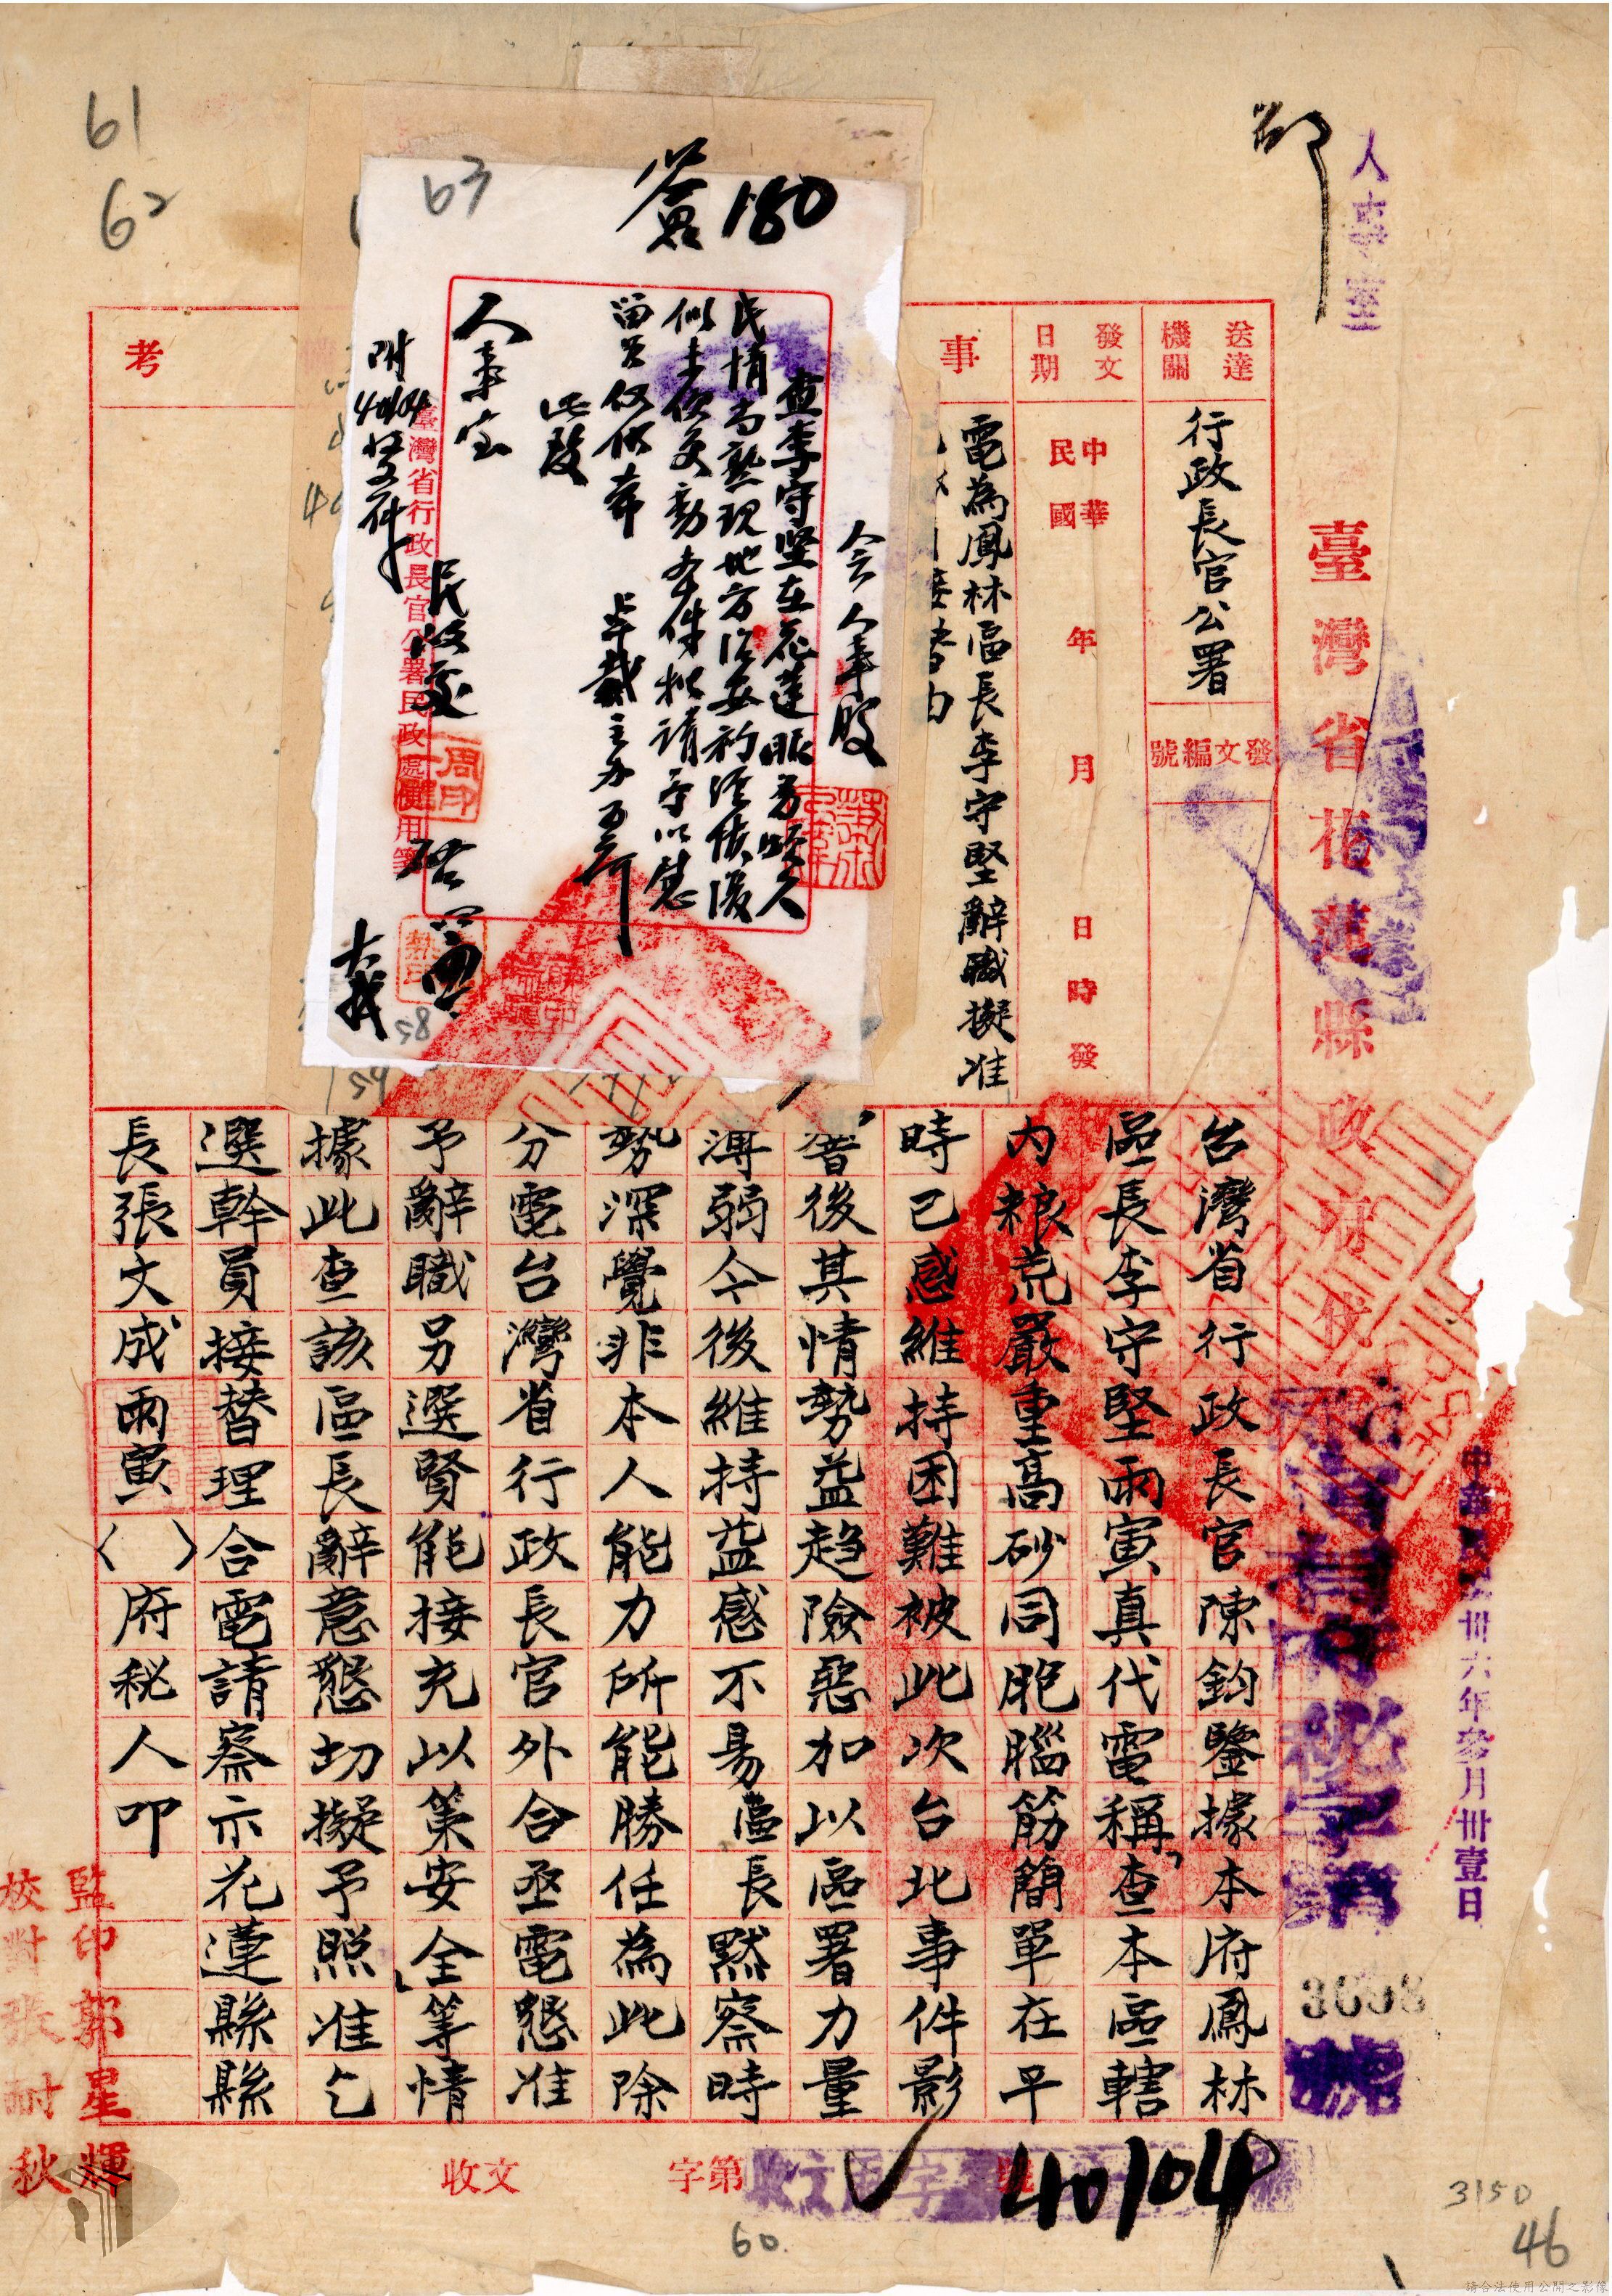 人事室
臺灣省花蓮縣政府代電
中華民國卅六年叁月卅壹日
3698
送達機關
行政長官公署
發文編號
發文日期
中華民國 年 月 日 時 發
事
電為鳳林區長李守堅辭職擬准
台灣省行政長官陳鈞鑒據本府鳳林
區長李守堅雨寅真代電稱「查本區轄
內粮荒嚴重高砂同胞腦筋簡單在平
時已感維持困難被此次台北事件影
響後其情勢益趋險惡加以區署力量
溥弱今後維持益感不易區長黙察時
勢深覺非本人能力所能勝任為此除
分電台灣省行政長官外合亟電懇准
予辭職另選賢能接充以策安全」等情
據此查該區長辭意懇切擬予照准乞
選幹員接替理合電請察示花蓮縣縣
長張文成雨寅〈 〉府秘人叩
監印郭星輝
校對張耐秋
考
簽
180
會人事股
查李守堅在花蓮服务頗久
民情尚熟現地方治安初
似未便更動本件拟請予以慰
此致
人事室
民政處 啓
附40104收文件
臺灣省行政長官公署民政處便用箋
收文 字第 號
40104
61
62
63
58
59
60.
3150
46
請合法使用公開之影像